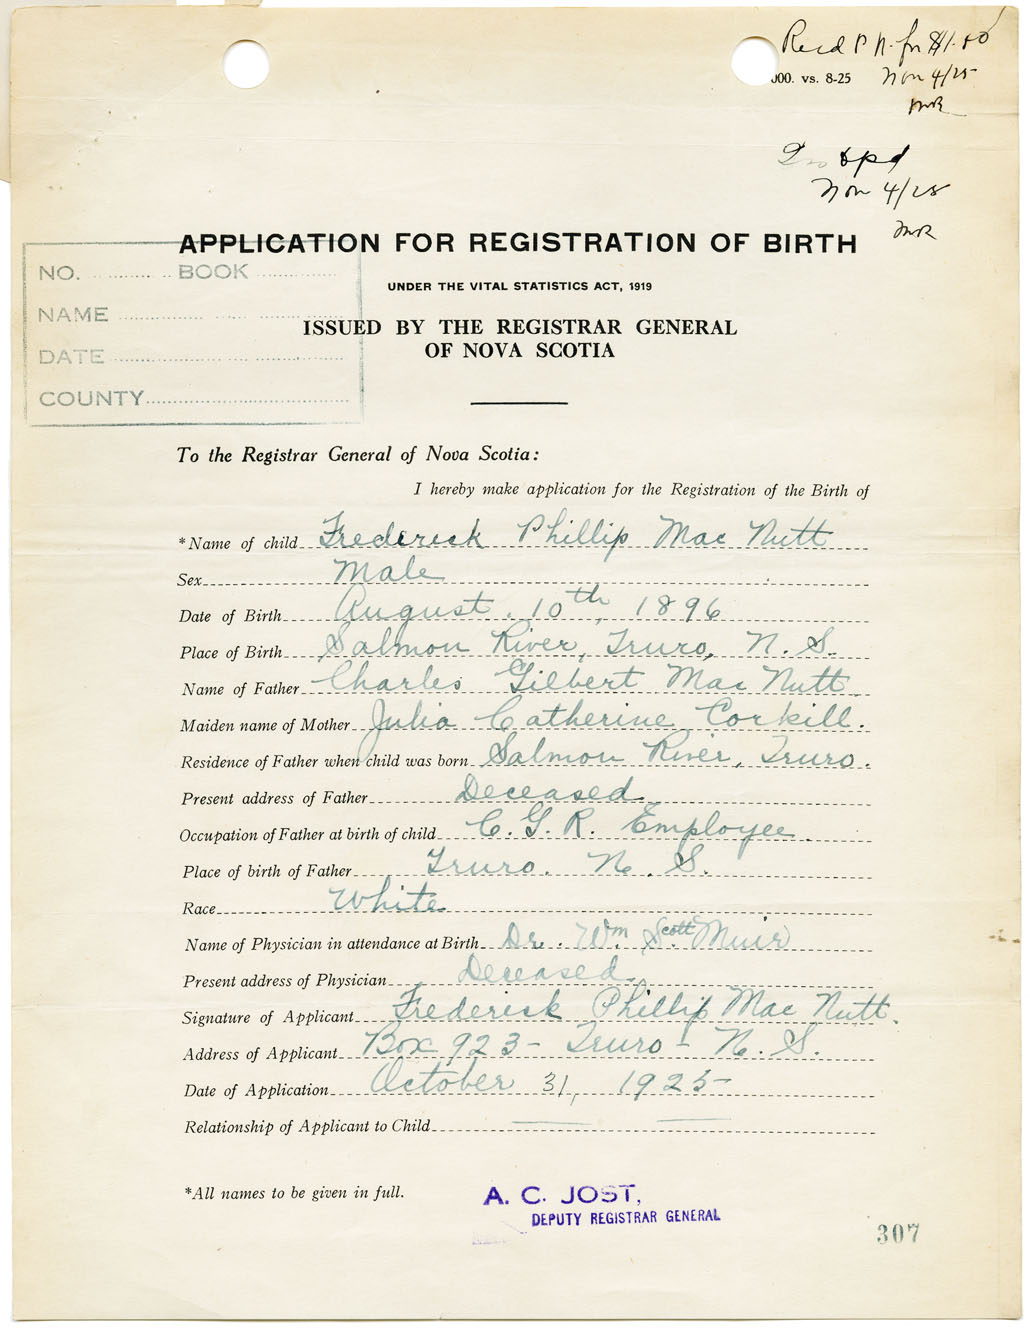 Recd P N. for $1.50
000. vs. 8-25 Nov 4/25
MR
Nov 4/25
MR
APPLICATION FOR REGISTRATION OF BIRTH
NO. BOOK
UNDER THE VITAL STATISTICS ACT, 1919
NAME
ISSUED BY THE REGISTRAR GENERAL
OF NOVA SCOTIA
DATE
COUNTY
To the Registrar General of Nova Scotia:
I hereby make application for the Registration of the Birth of
*Name of child Frederick Phillip Mac Nutt
Sex Male
Date of Birth August. 10th, 1896
Place of Birth Salmon River, Truro, N. S.
Name of Father Charles Gilbert Mac Nutt
Maiden name of Mother Julia Catherine Corkill.
Residence of Father when child was born Salmon River, Truro.
Present address of Father Deceased
Occupation of Father at birth of child C. G. R. Employee
Place of birth of Father Truro. N. S.
Race White
Name of Physician in attendance at Birth Dr. Wm Scott Muir
Present address of Physician Deceased
Signature of Applicant Frederick Phillip Mac Nutt.
Address of Applicant Box 923 - Truro - N. S.
Date of Application October 31, 1925
Relationship of Applicant to Child
*All names to be given in full.
A. C. JOST,
DEPUTY REGISTRAR GENERAL
307